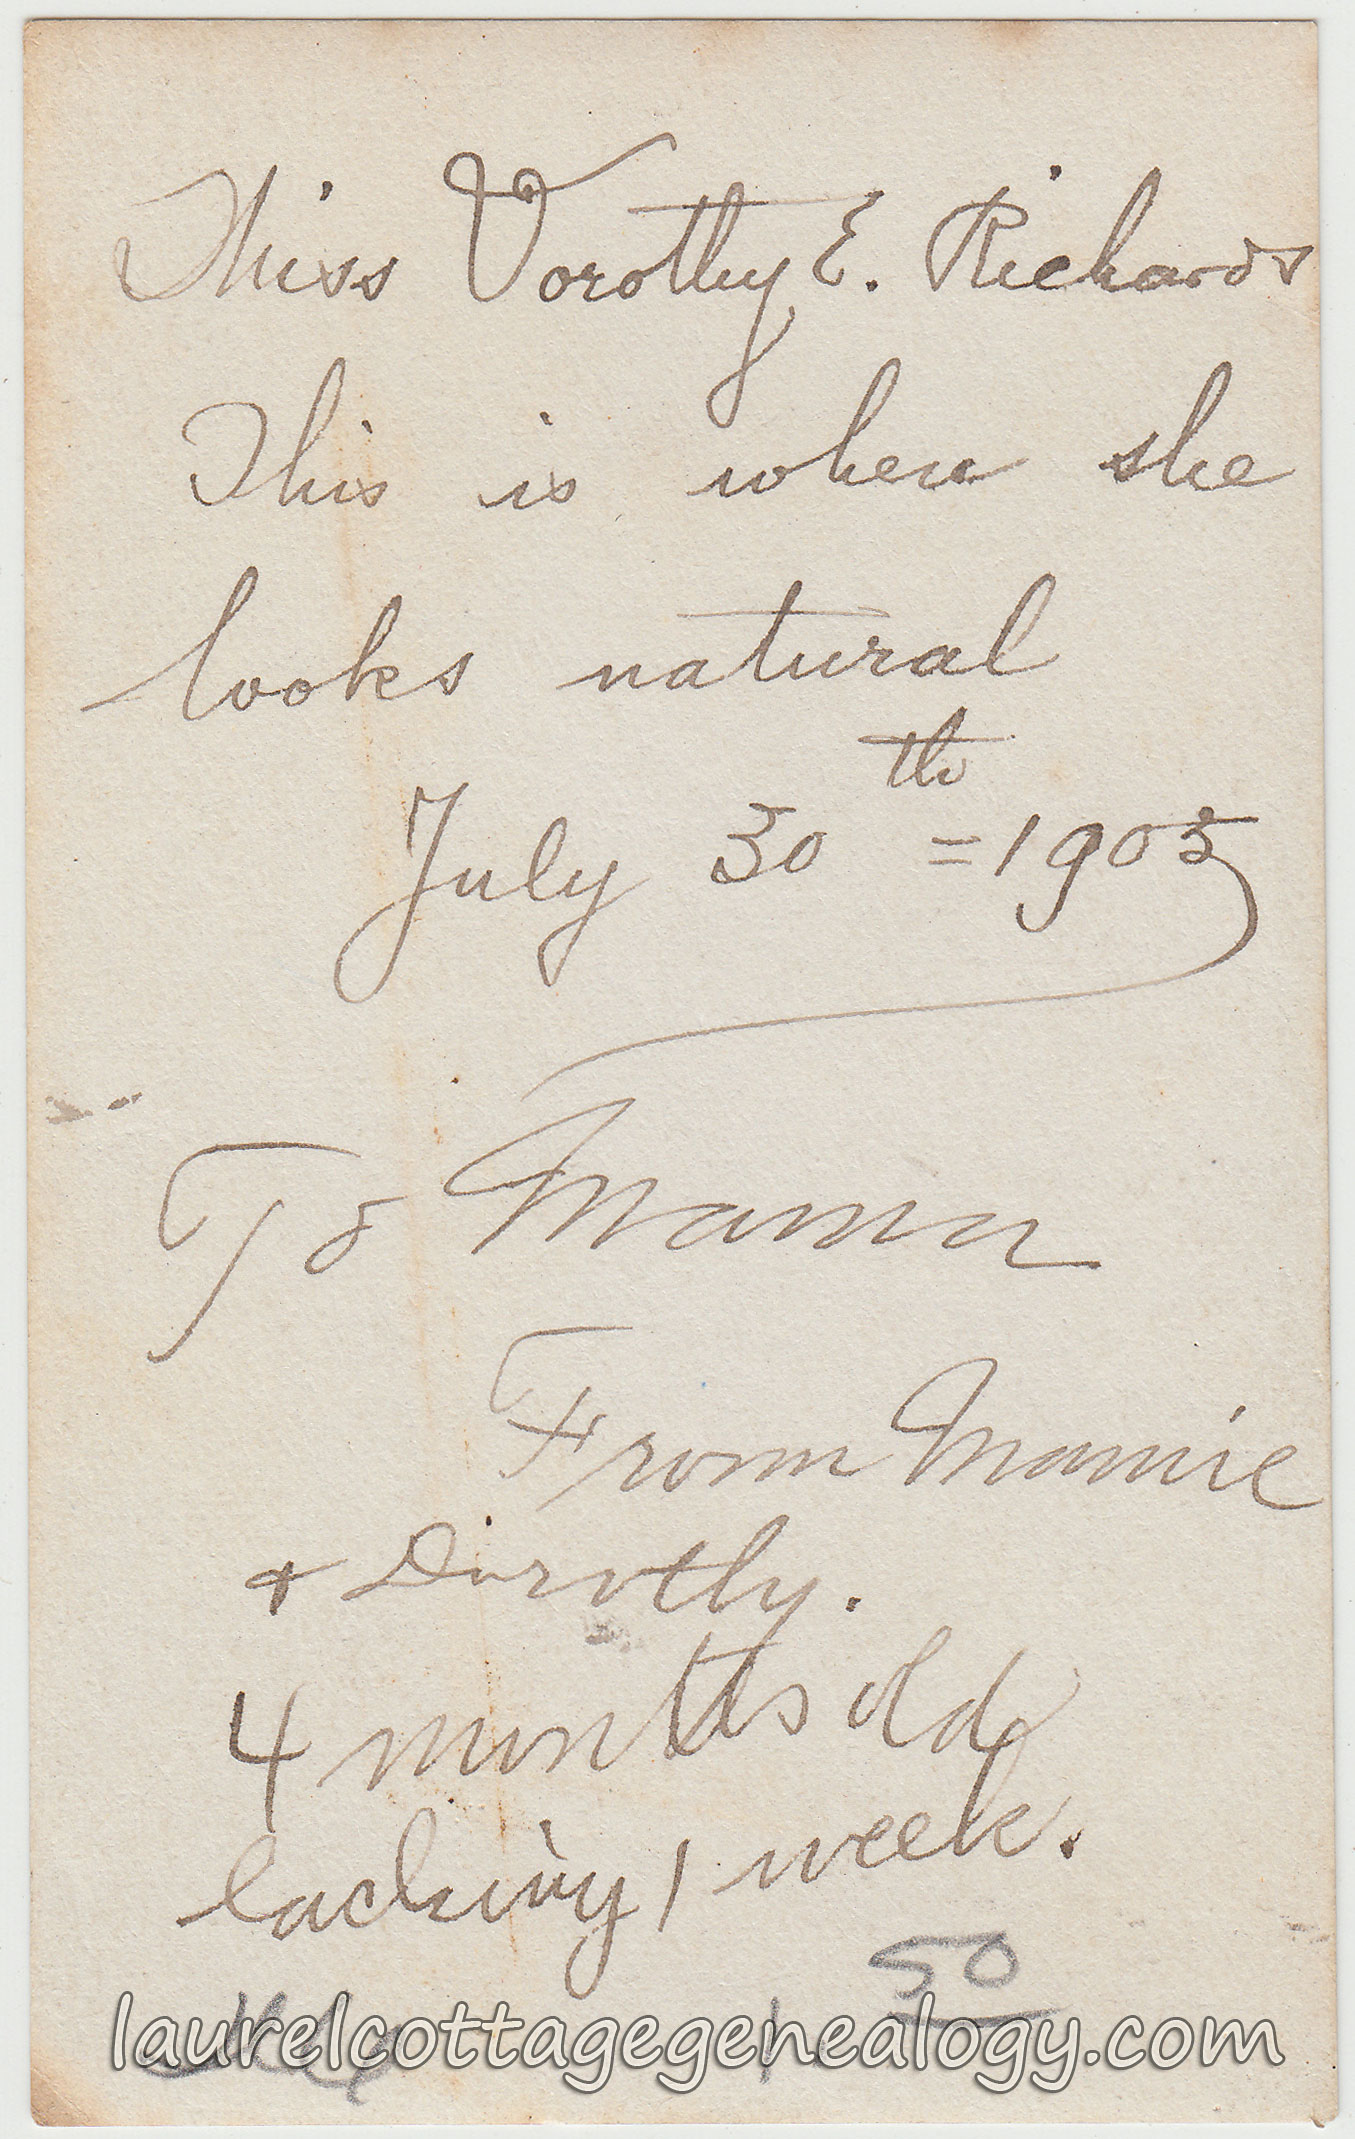 Miss Dorothy E. Richards
This is when she
looks natural
th
July 30 = 1905
To Mama
From Mamie
+ Dorothy.
4 months old
lacking 1 week.
50
laurelcottagegenealogy.com